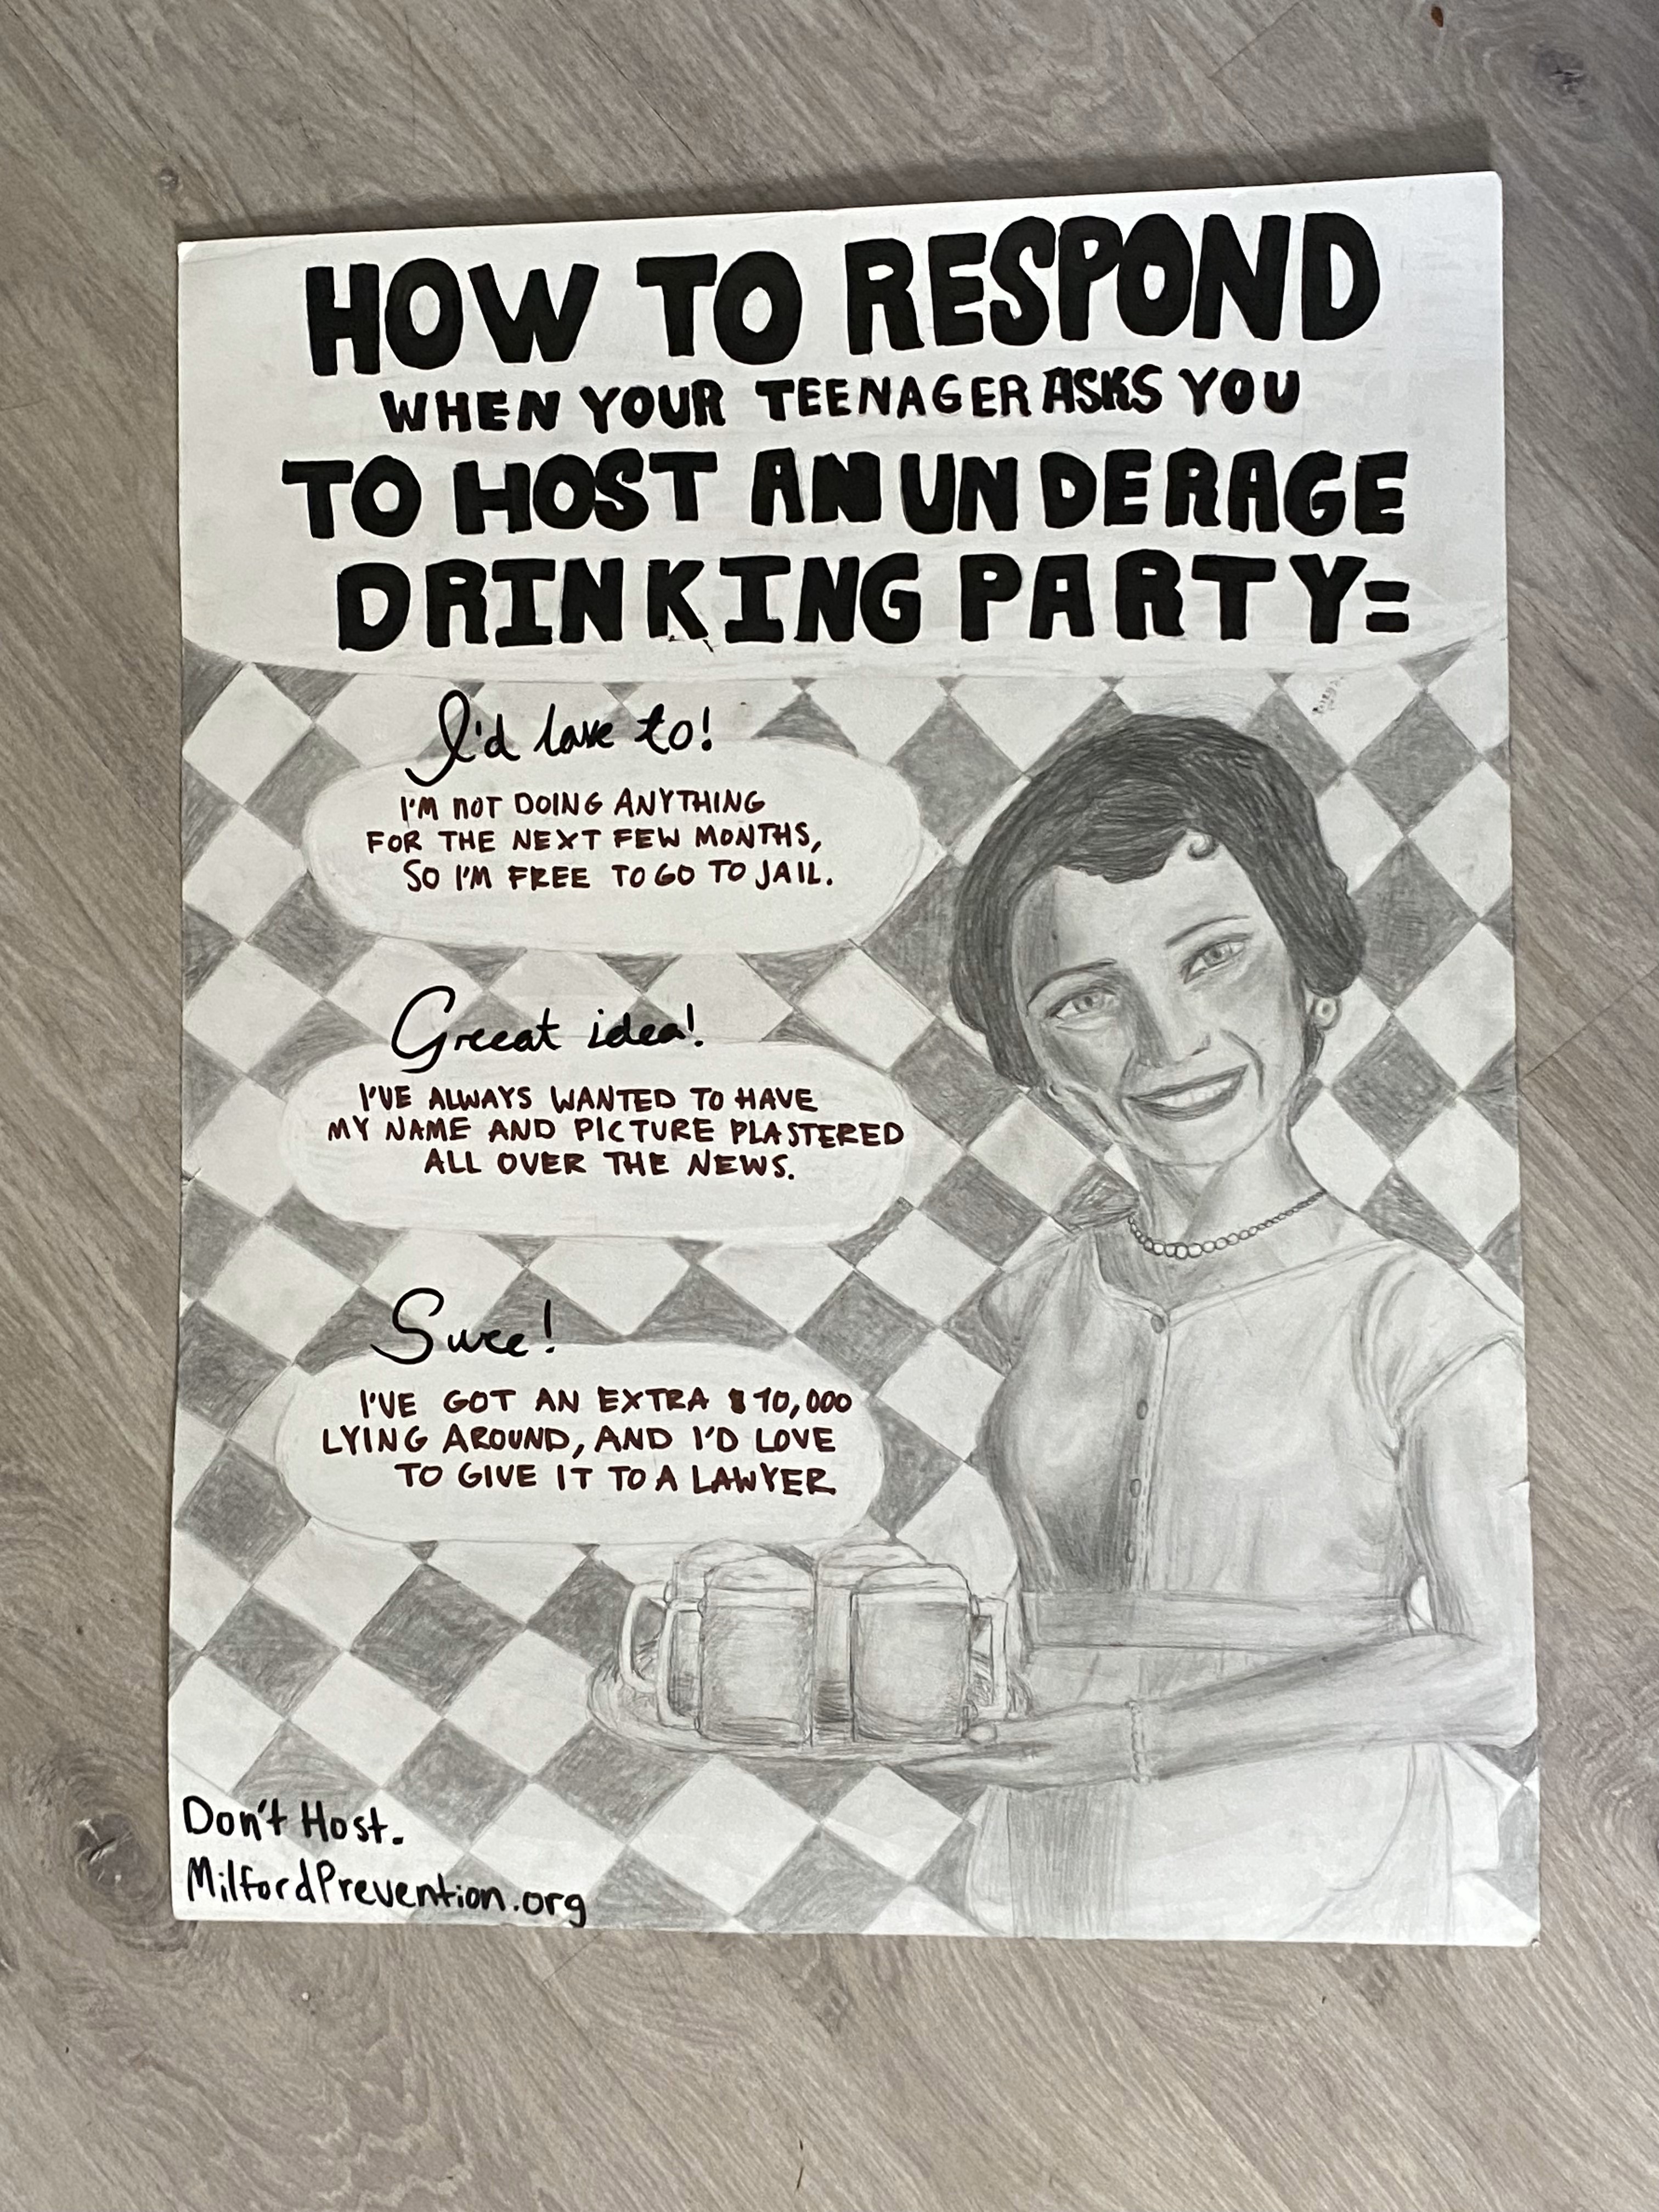 HOW TO RESPOND
WHEN YOUR TEENAGER ASKS YOU
TO HOST AN UNDERAGE
DRINKING PARTY=
I'd love to!
I'M NOT DOING ANYTHING
FOR THE NEXT FEW MONTHS,
SO I'M FREE TO GO TO JAIL.
Greeat idea!
I'VE ALWAYS WANTED TO HAVE
MY NAME AND PICTURE PLASTERED
ALL OVER THE NEWS.
Sure!
I'VE GOT AN EXTRA $10,000
LYING AROUND, AND I'D LOVE
TO GIVE IT TO A LAWYER
Don't Host.
MilfordPrevention.org